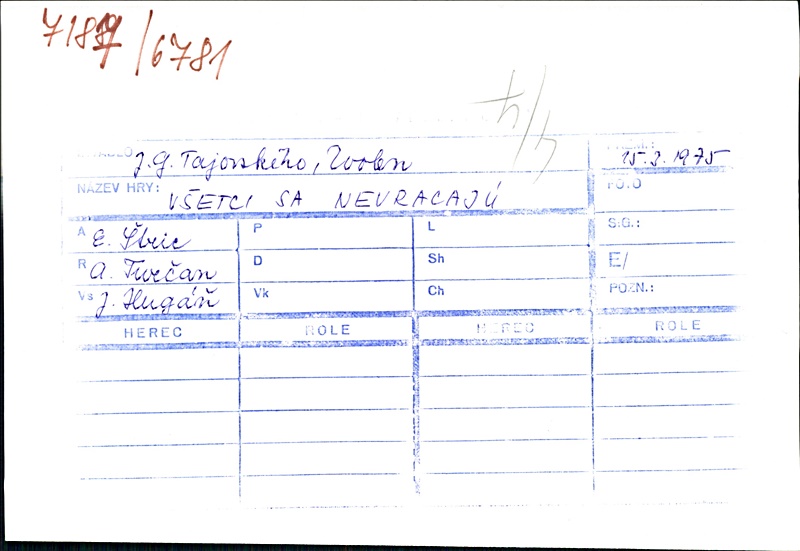 /6781
J.G. Tajovského, Zvolen
15.3.1975
NÁZEV HRY: VŠETCI SA NEVRACAJÚ
FO.O
A E. Štric P L S.G.:
R A. Turčan D Sh E/
Vs J. Hugáň Vk Ch POZN.:
HEREC ROLE HEREC ROLE